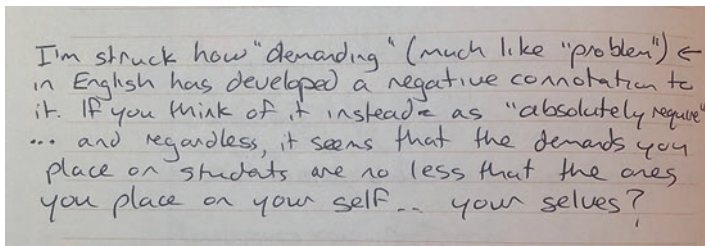 I'm struck how "demanding" (much like "problem") ←
in English has developed a negative connotation to
it. If you think of it instead as "absolutely require"
... and regardless, it seems that the demands you
place on students are no less that the ones
you place on your self... your selves?